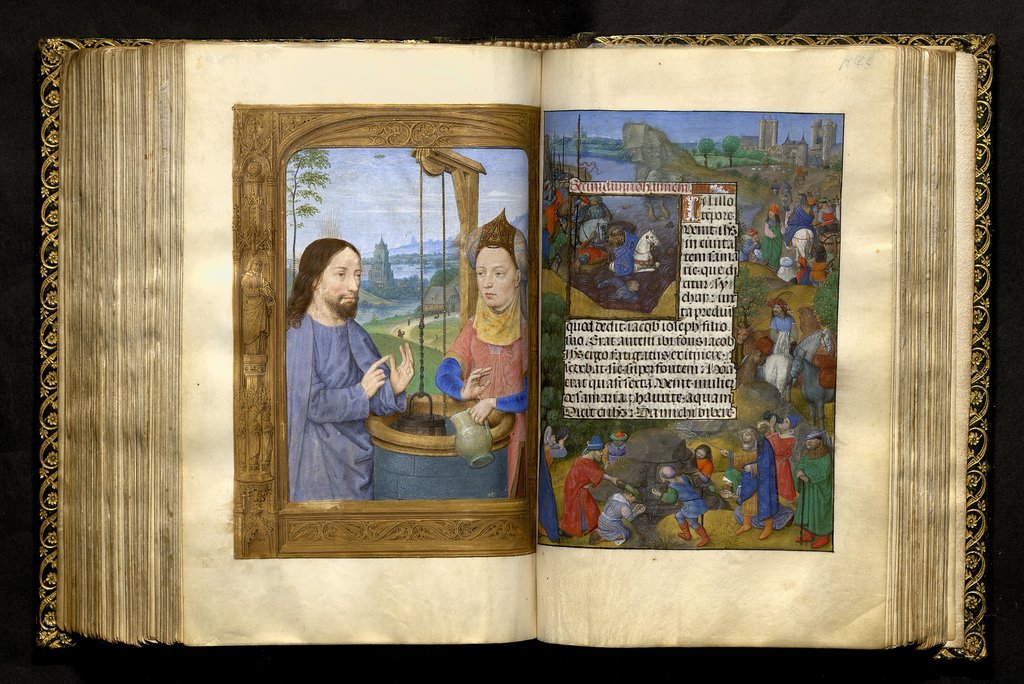 Secundum iohannem
In illo
tempore
Venit ihs
in ciuita
tem sama
rie que di
citur sy
char: iux
ta prediu
quod dedit iacob ioseph filio
suo. Erat autem ibi fons iacob
Ihs ergo fatigatus ex itinere
sedebat sic super fontem. Hora
erat quasi sexta. Venit mulier
de samaria haurire aquam
Dicit ei ihs: Da michi bibere